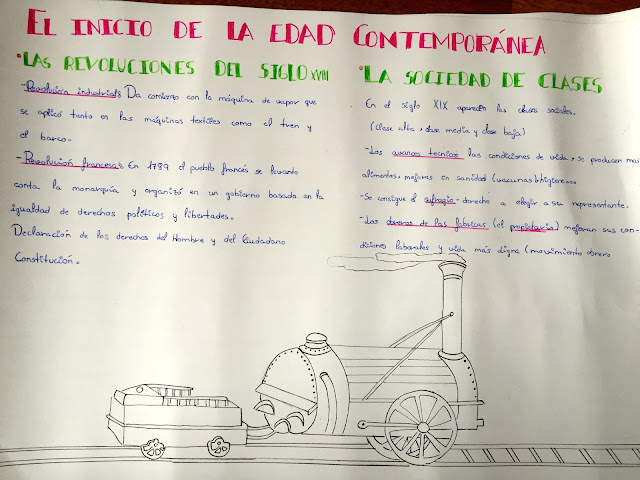 EL INICIO DE LA EDAD CONTEMPORÁNEA
LAS REVOLUCIONES DEL SIGLO XVIII
-Revolución industrial: Da comienzo con la máquina de vapor que
se aplicó tanto en las máquinas textiles como el tren y
el barco.
-Revolución francesa: En 1789 el pueblo francés se levanto
contra la monarquía y organizó en un gobierno basado en la
igualdad de derechos políticos y libertades.
Declaración de los derechos del Hombre y del Ciudadano
Constitución.
LA SOCIEDAD DE CLASES
En el siglo XIX aparecen las clases sociales.
(clase alta, clase media y clase baja)
-Los avances tecnicos las condiciones de vida, se producen mas
alimentos, mejores en sanidad (vacunas higiene...
-Se consigue el sufragio - derecho a elegir a su representante.
-Los obreros de las fabricas (el propietario) mejoran sus con-
diciones laborales y vida más digna (movimiento obrero